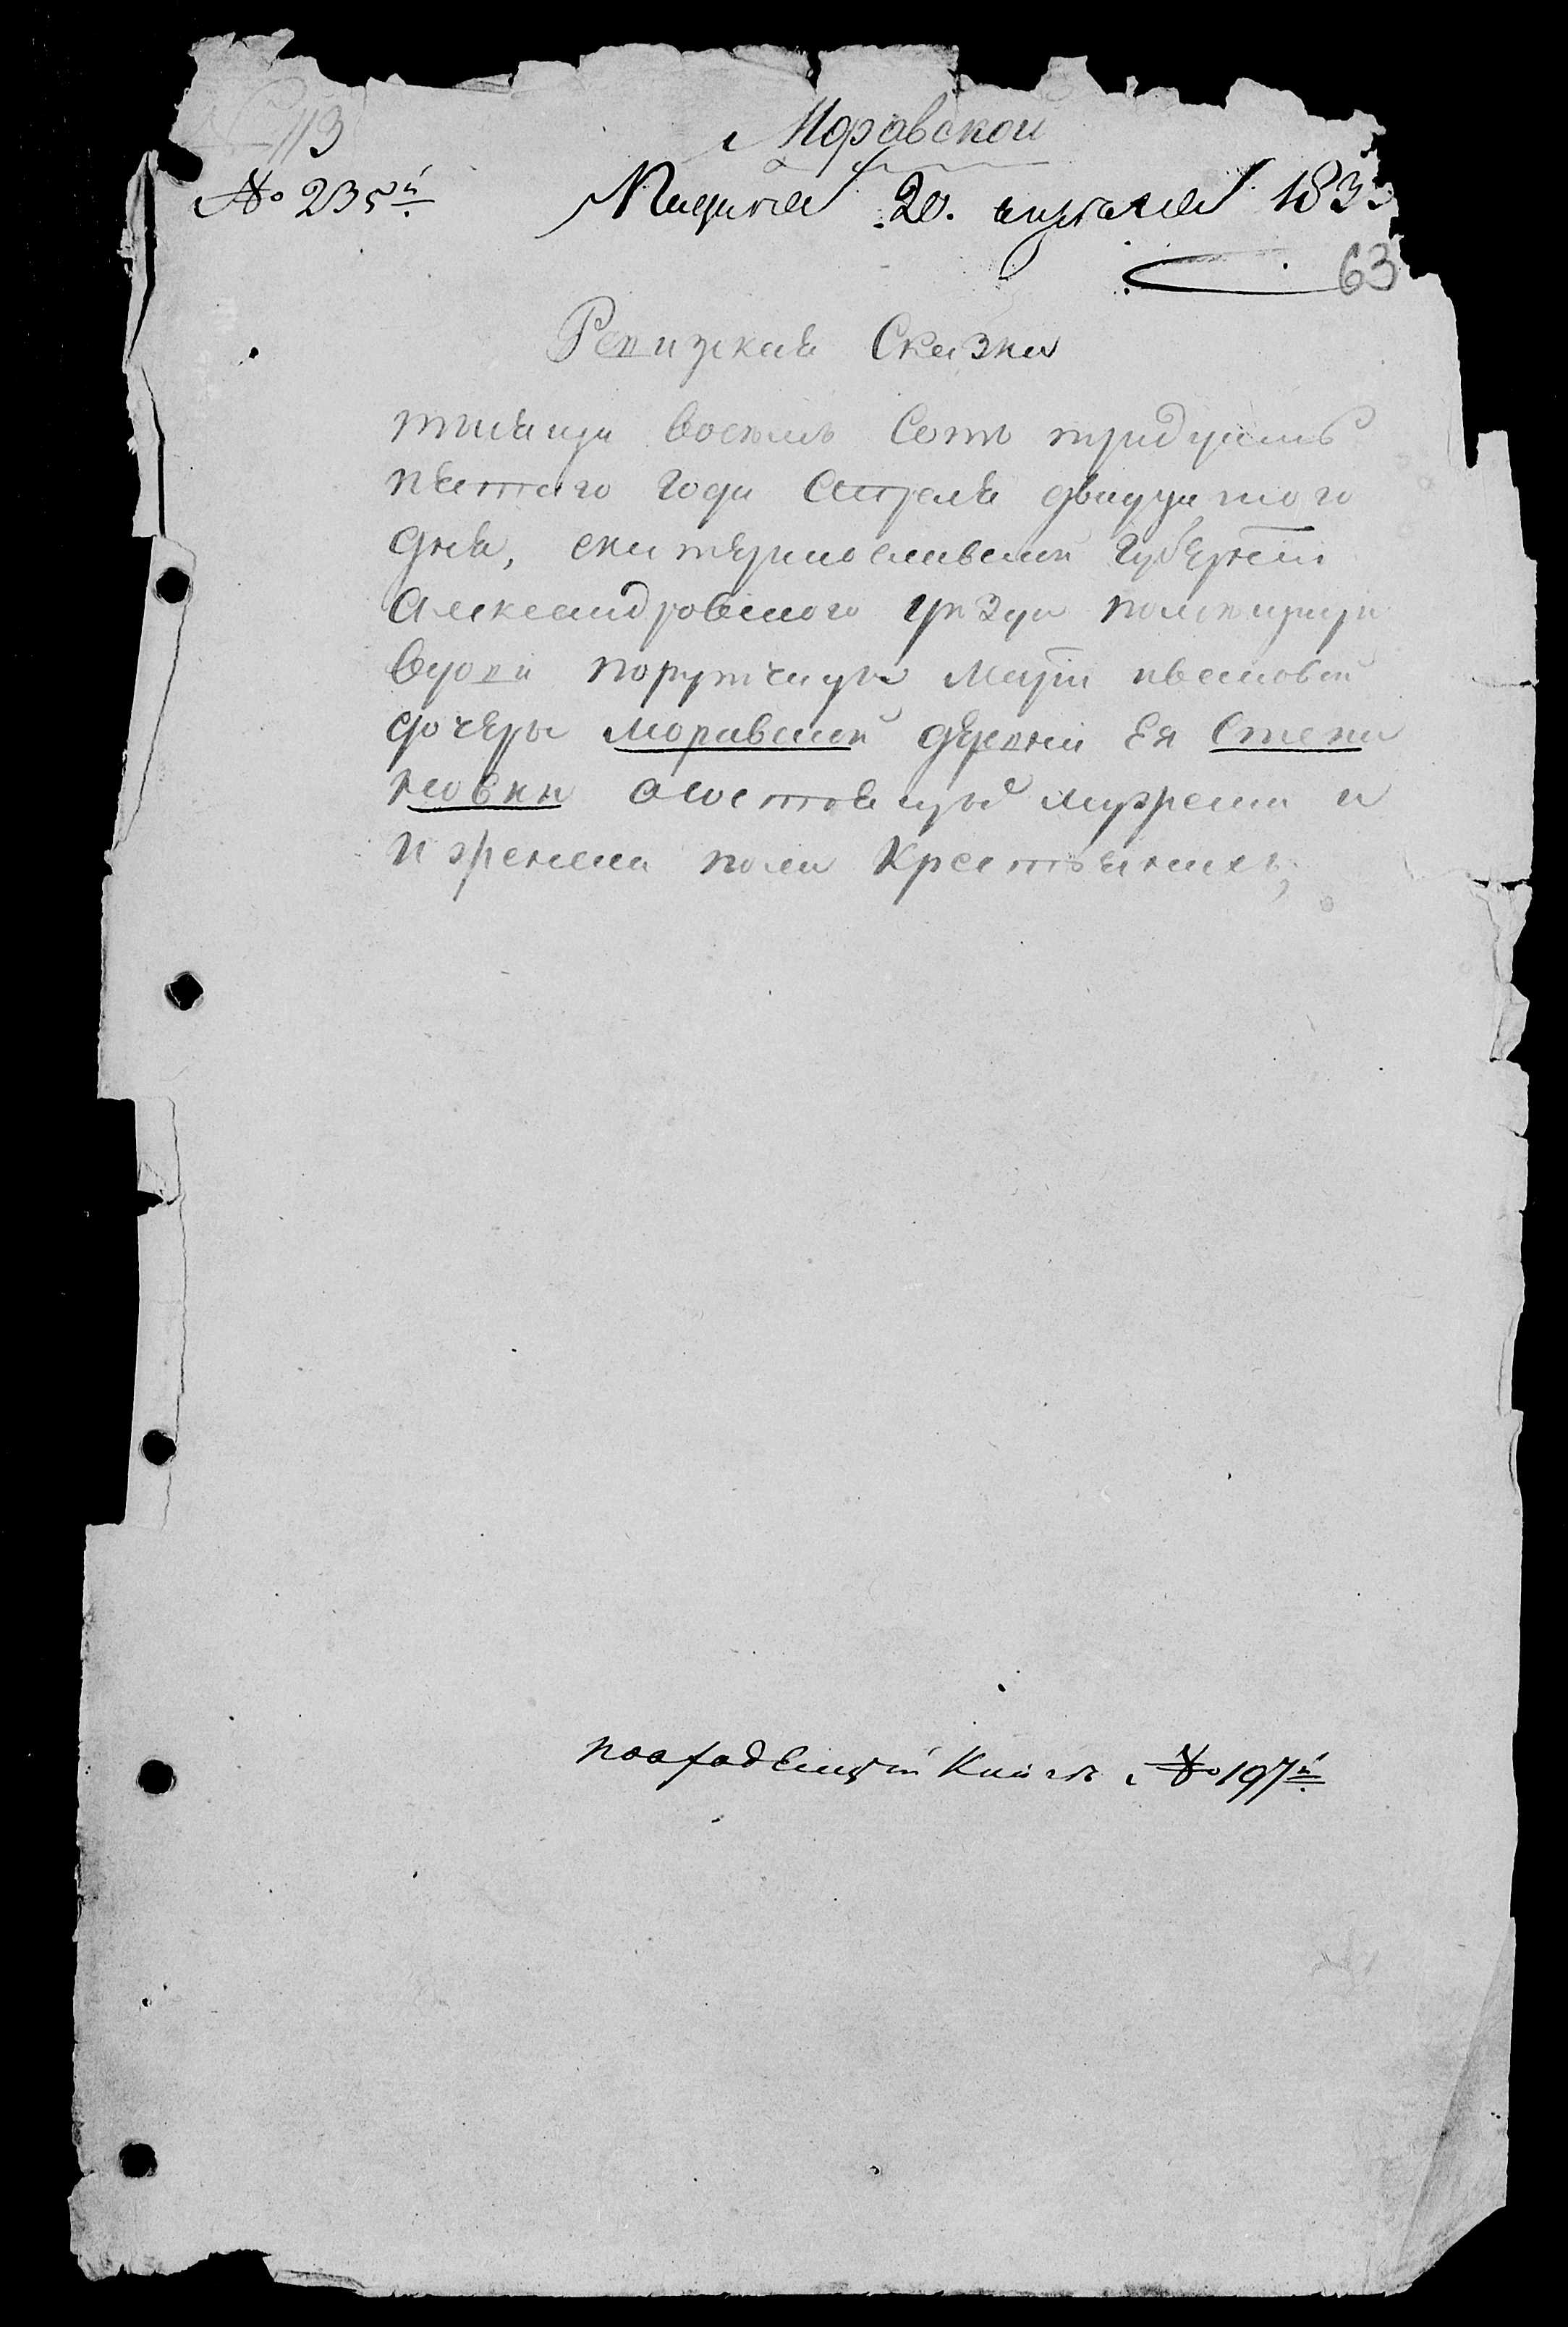 113
Моравской
№ 235й
Подана 20. апреля 183
63
Ревизкая Сказка
тысяща восемь Сотъ тридцать
пятаго года Апреля двадцатого
дня, екатеринославской Губернiи
Александровского уезда помещицы
вдовы порутчицы Марiи ивановой
дочеры моравской деревни Ея Степа
новки о состоящихъ мужеска и
и женска пола Крестьянахъ,
Книге № 197й